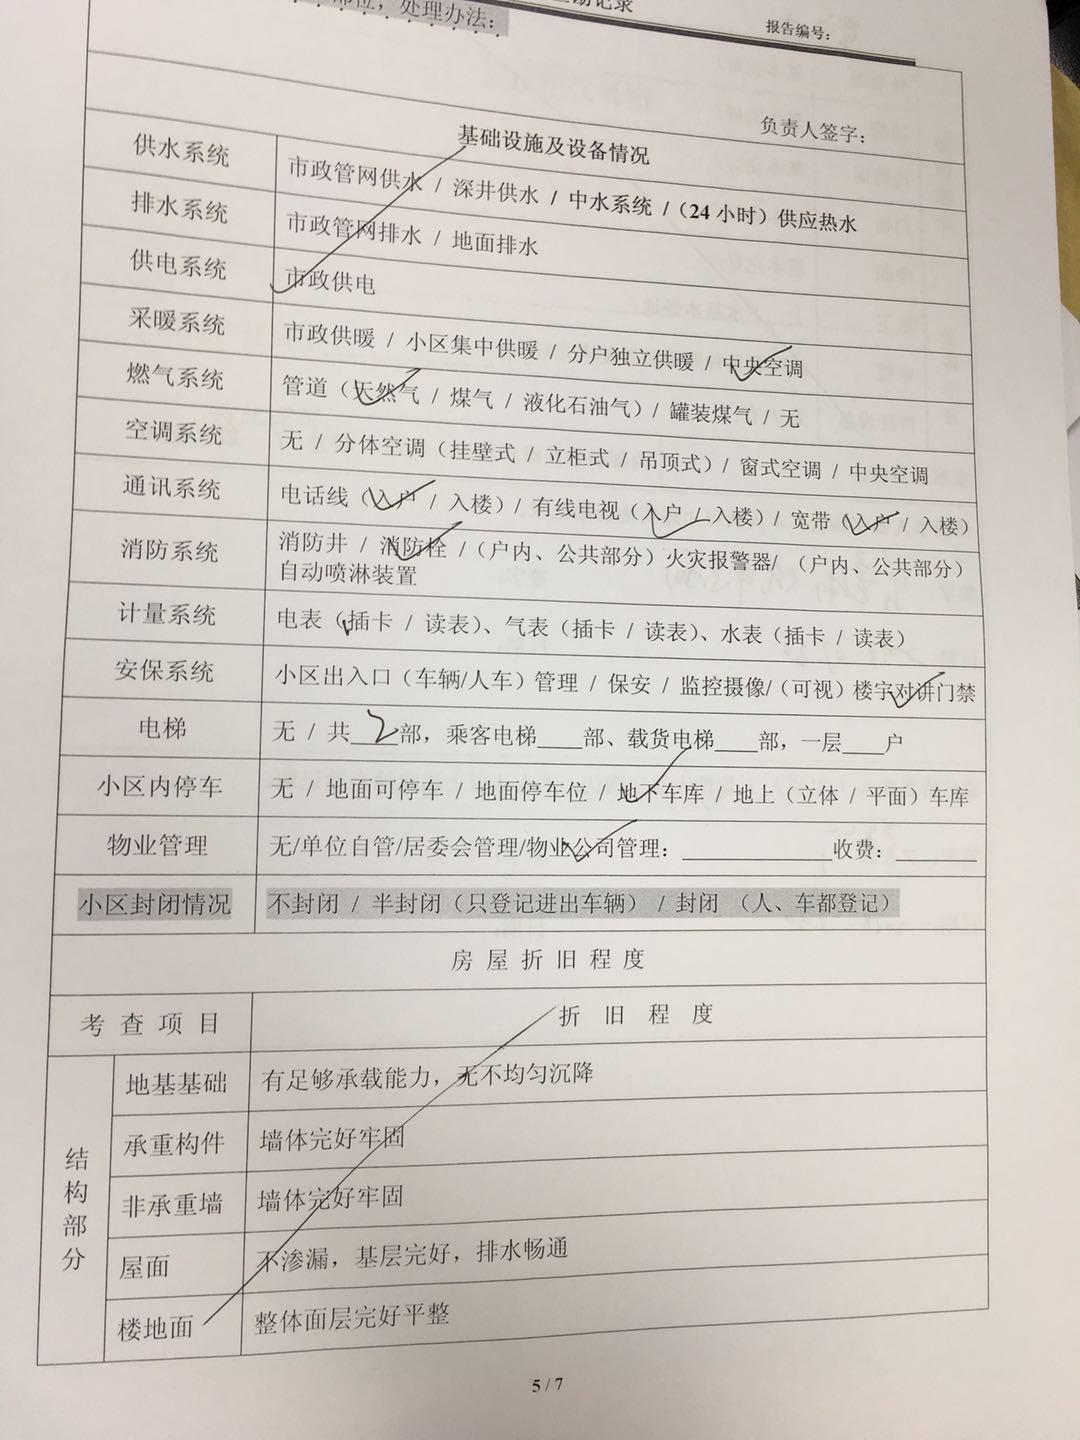 部位，处理办法：
勘记录
报告编号：
负责人签字：
基础设施及设备情况
供水系统 市政管网供水 / 深井供水 / 中水系统 /（24 小时）供应热水
排水系统 市政管网排水 / 地面排水
供电系统 市政供电
采暖系统 市政供暖 / 小区集中供暖 / 分户独立供暖 / 中央空调
燃气系统 管道（天然气 / 煤气 / 液化石油气）/ 罐装煤气 / 无
空调系统 无 / 分体空调（挂壁式 / 立柜式 / 吊顶式）/ 窗式空调 / 中央空调
通讯系统 电话线（入户 / 入楼）/ 有线电视（入户 / 入楼）/ 宽带（入户 / 入楼）
消防系统 消防井 / 消防栓 /（户内、公共部分）火灾报警器/ （户内、公共部分）
自动喷淋装置
计量系统 电表（插卡 / 读表）、气表（插卡 / 读表）、水表（插卡 / 读表）
安保系统 小区出入口（车辆/人车）管理 / 保安 / 监控摄像/（可视）楼宇对讲门禁
电梯 无 / 共 2 部，乘客电梯____部、载货电梯____部，一层____户
小区内停车 无 / 地面可停车 / 地面停车位 / 地下车库 / 地上（立体 / 平面）车库
物业管理 无/单位自管/居委会管理/物业公司管理：______________收费：________
小区封闭情况 不封闭 / 半封闭（只登记进出车辆） / 封闭 （人、车都登记）
房 屋 折 旧 程 度
考 查 项 目 折 旧 程 度
结构部分
地基基础 有足够承载能力，无不均匀沉降
承重构件 墙体完好牢固
非承重墙 墙体完好牢固
屋面 不渗漏，基层完好，排水畅通
楼地面 整体面层完好平整
5 / 7